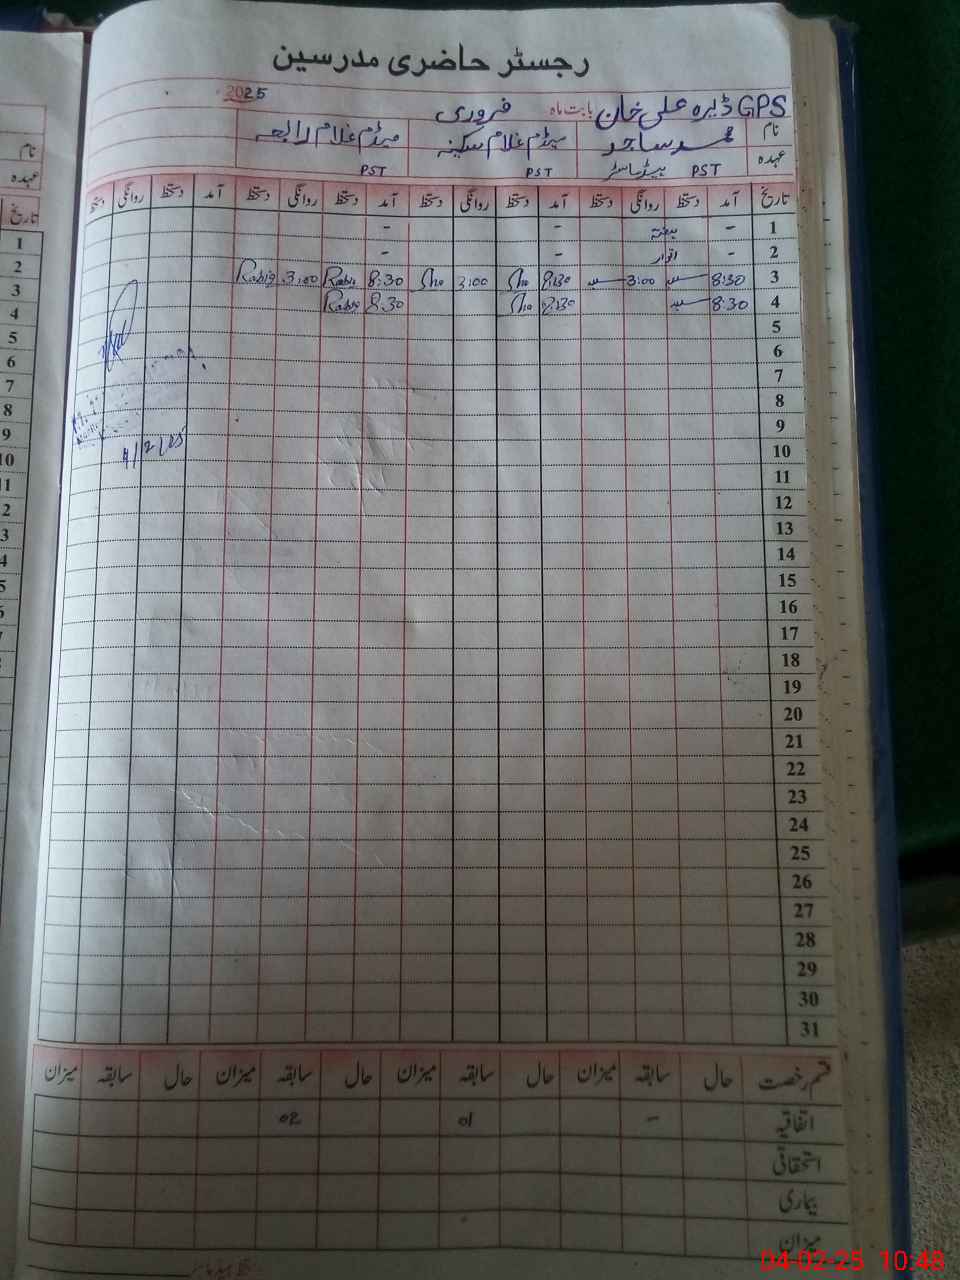 رجسٹر حاضری مدرسین
GPS ڈیرہ علی خان بابت ماہ فروری 2025
نام محمد ساجد میڈم غلام سکینہ میڈم غلام رابعہ
عہدہ PST ہیڈ ماسٹر PST PST
تاریخ آمد دستخط روانگی دستخط آمد دستخط روانگی دستخط آمد دستخط روانگی دستخط آمد دستخط روانگی دستخط
1 - ہفتہ - -
2 - اتوار - -
3 8:30 3:00 8:30 Sho 3:00 Sho 8:30 Rabia 3:00 Rabia
4 8:30 8:30 Sho 8:30 Rabia
5
6
7
8
9
10
11
12
13
14
15
16
17
18
19
20
21
22
23
24
25
26
27
28
29
30
31
4/2/25
قسم رخصت حال سابقہ میزان حال سابقہ میزان حال سابقہ میزان حال سابقہ میزان
اتفاقیہ - 01 02
استحقاقی
بیماری
میزان
نام
عہدہ
تاریخ
1
2
3
4
5
6
7
8
9
10
04-02-25 10:48